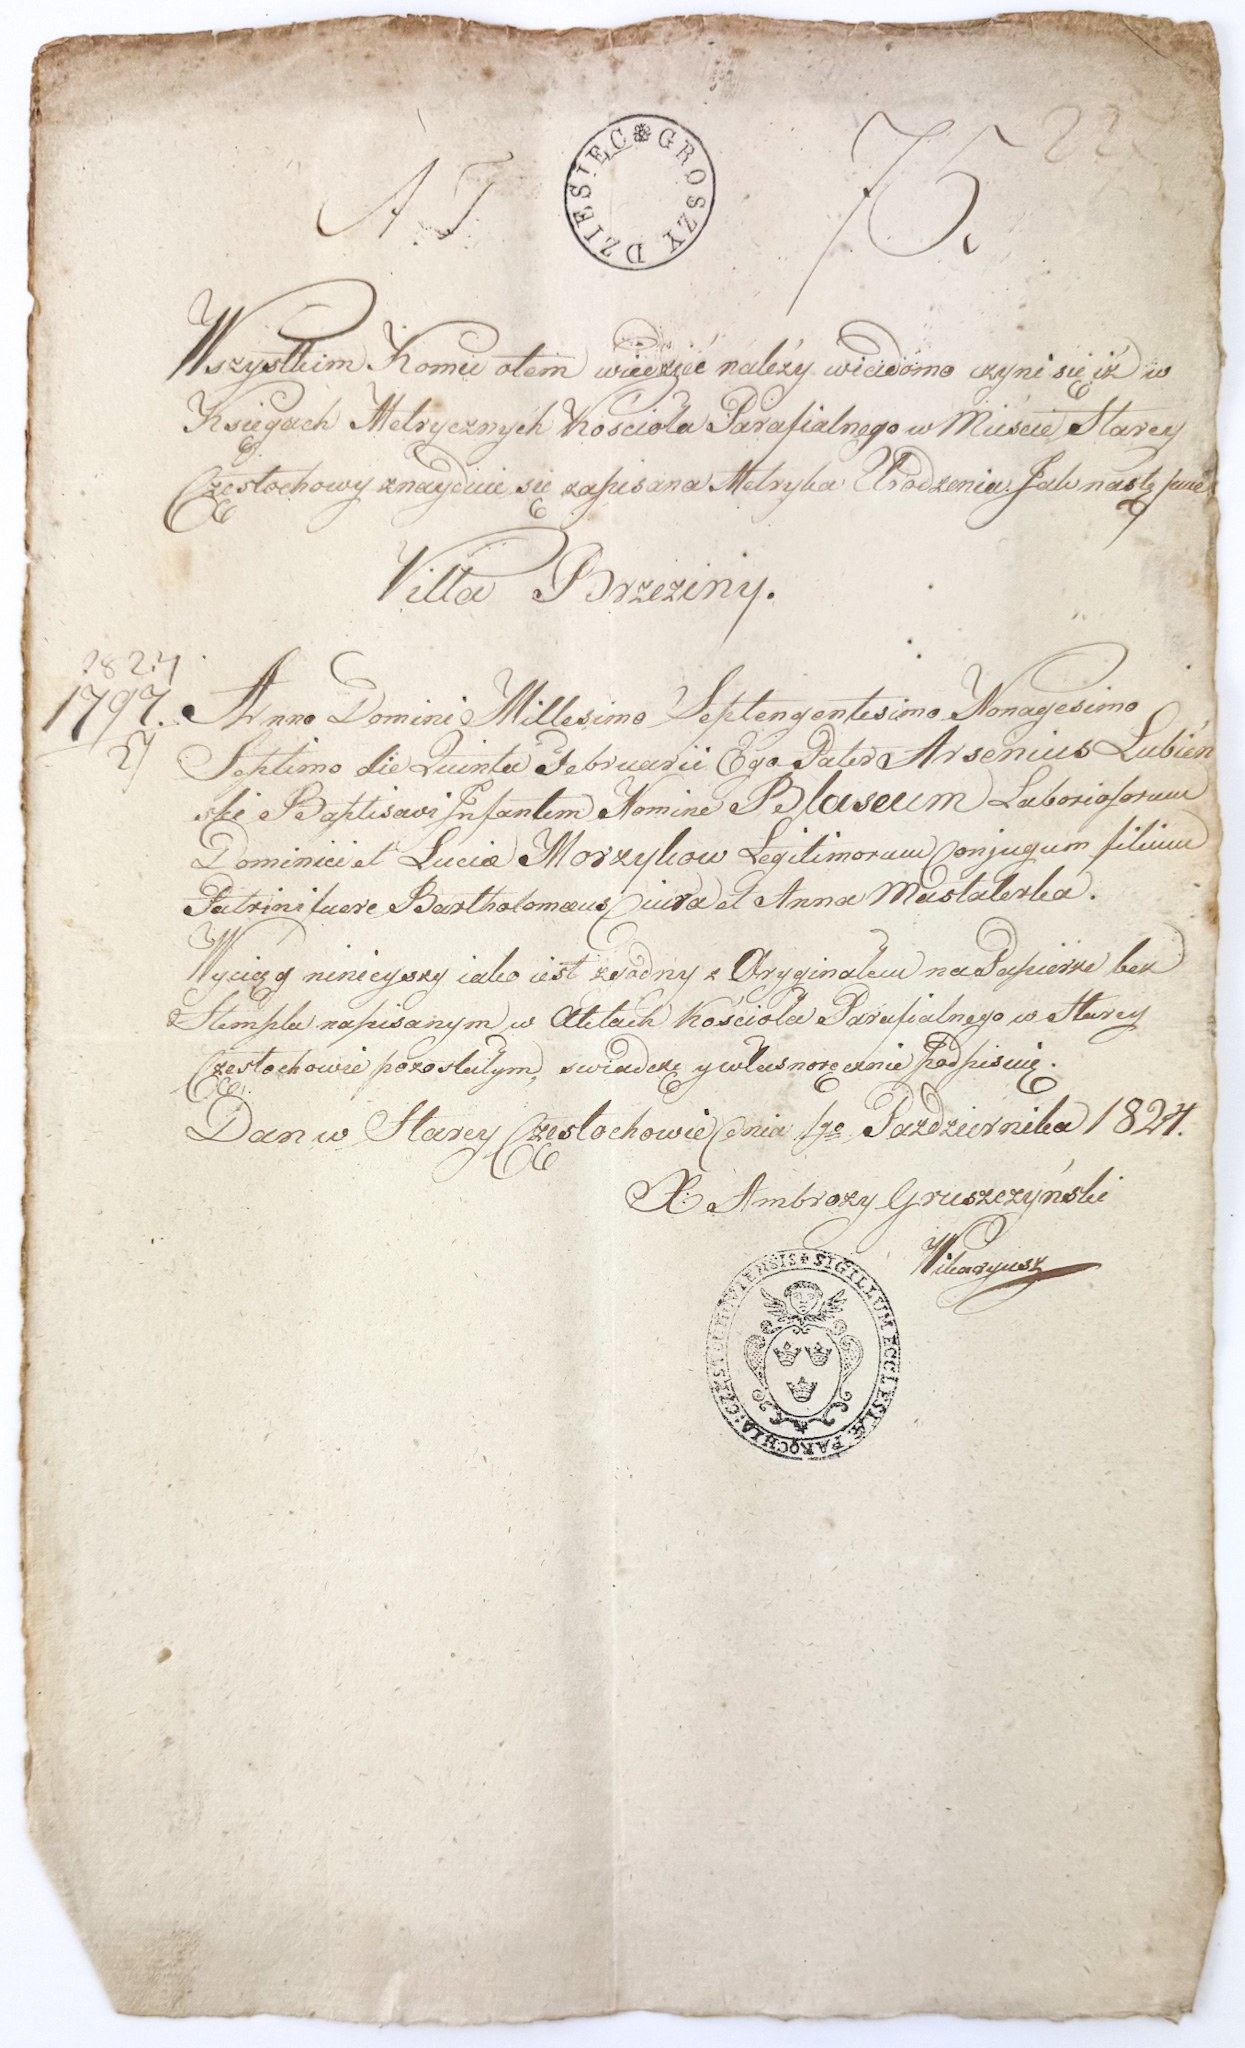 A J
DZIESIĘC GROSZY
75.
Wszystkim Komu otem wiedzieć należy wiadomo czyni się iż w
Księgach Metrycznych Kościoła Parafialnego w Mieście Starey
Częstochowy znayduie się zapisana Metryka Urodzenia Jak nastę puie
Villa Brzeziny.
1824
1797.
27
Anno Domini Millesimo Septengentesimo Nonagesimo
Septimo die Quinta Februarii Ego Pater Arsenius Lubień
ski Baptisavi Infantem Nomine Blaseum Laboriosorum
Dominici et Luciæ Morzykow Legitimorum Conjugum filium
Patrini fuere Bartholomæus Ciura et Anna Mastalerka.
Wyciąg ninieyszy iako iest zgodny z Oryginałem na Papierze bez
Stempla zapisanym w Aktach Kościoła Parafialnego w Starey
Częstochowie pozostałym, swiadczę y własnoręcznie podpisuię.
Dan w Starey Częstochowie dnia 1go Pazdziernika 1824.
X. Ambrozy Gruszczyński
Wikaryusz
SIGILLUM ECCLESIÆ PAROCHIA: CZĘSTOCHOVIENSIS